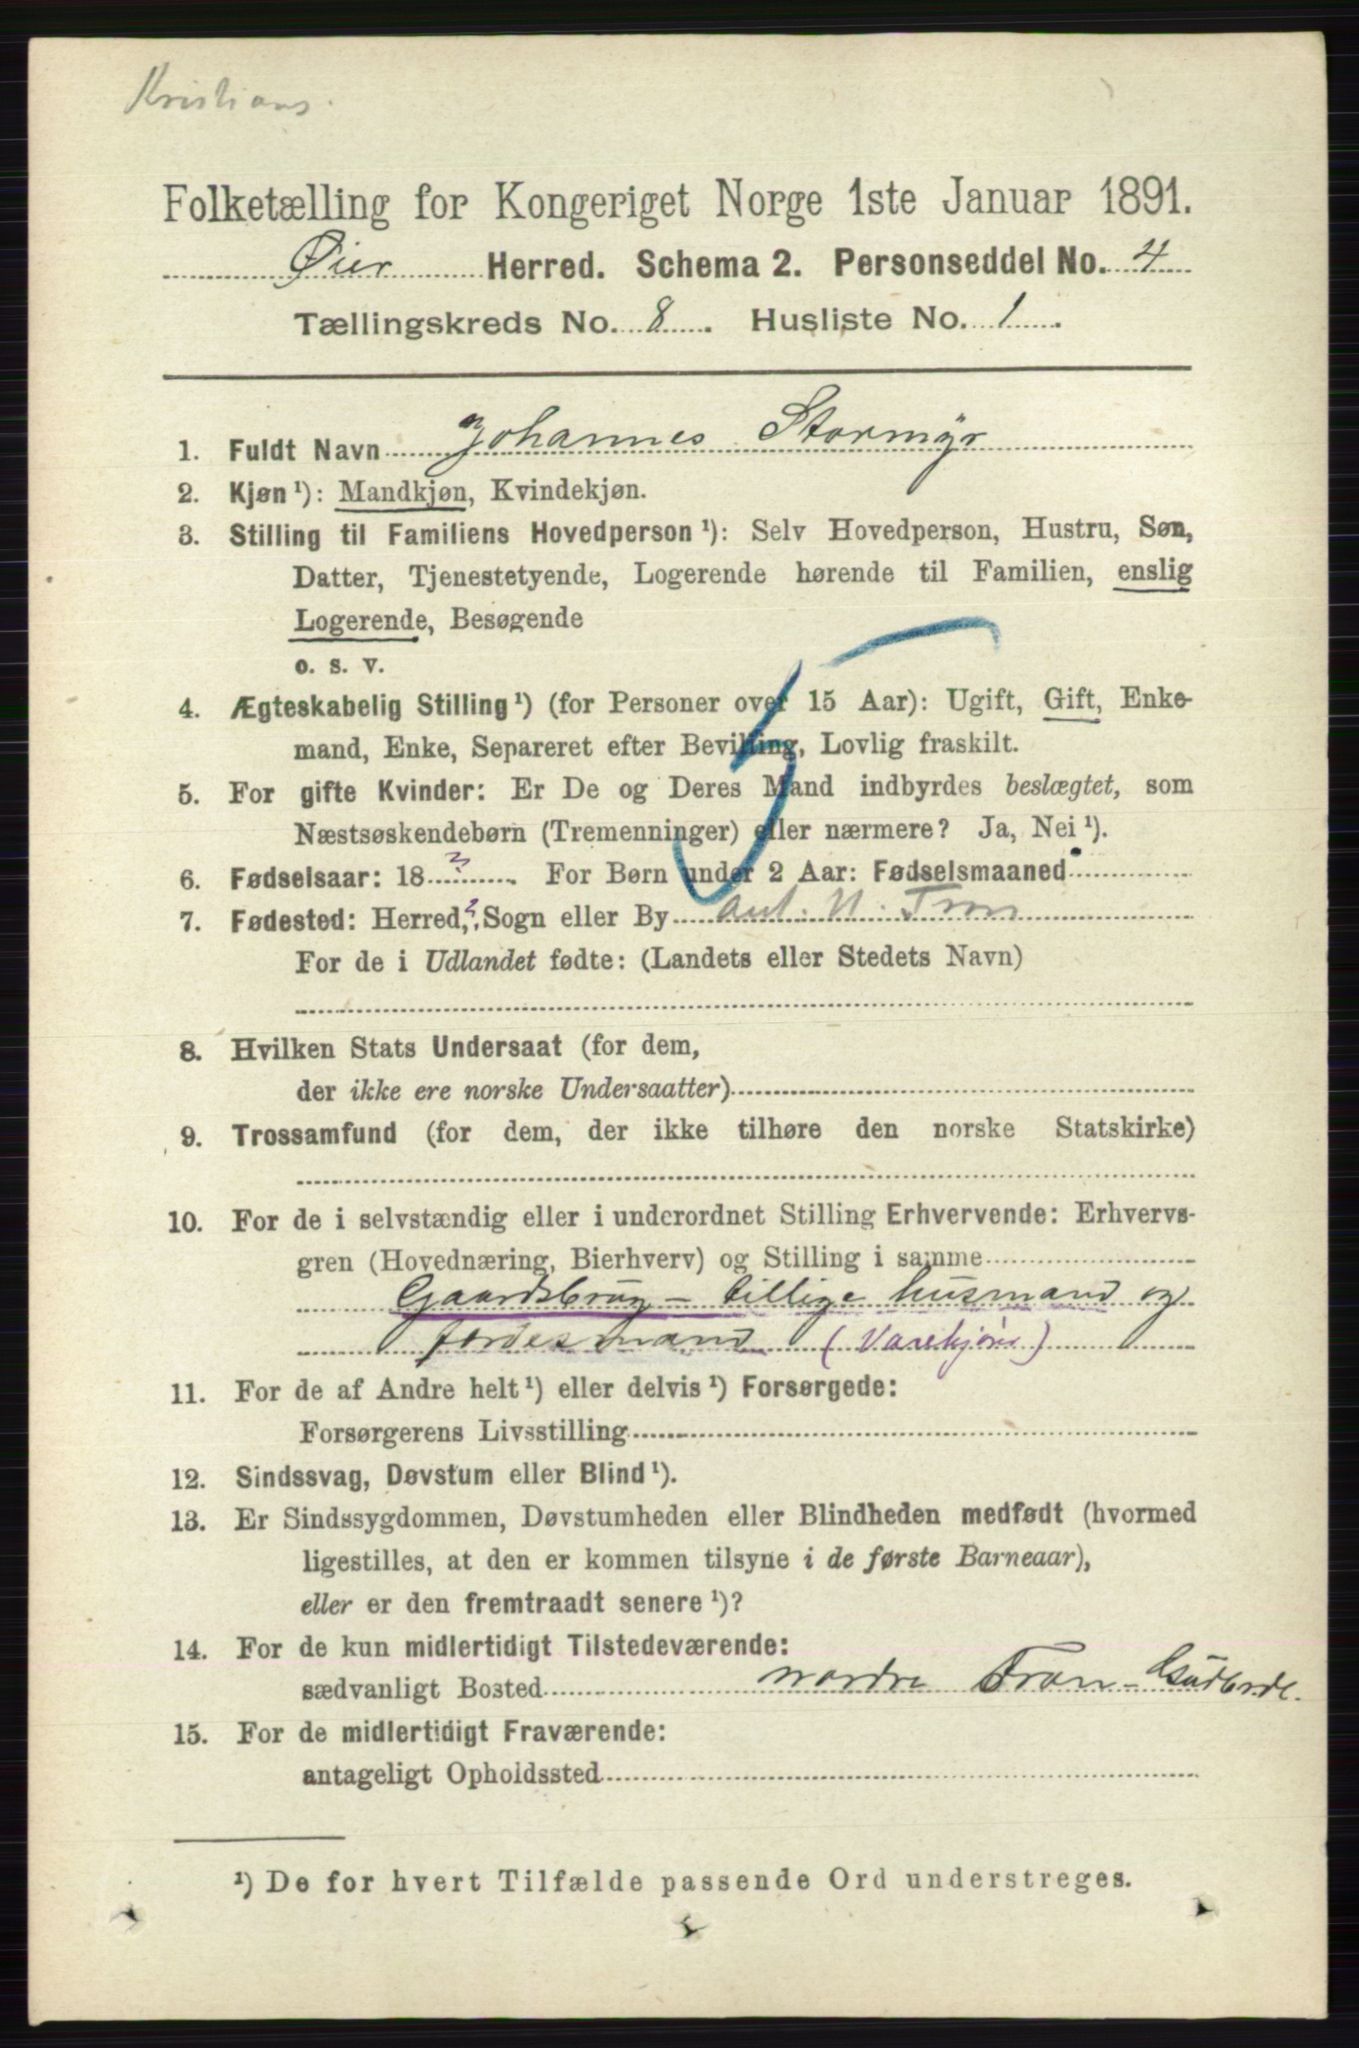 Kristians.
Folketælling for Kongeriget Norge 1ste Januar 1891.
Øier Herred. Schema 2. Personseddel No. 4
Tællingskreds No. 8. Husliste No. 1.
1. Fuldt Navn Johannes Stormyr
2. Kjøn ¹): Mandkjøn, Kvindekjøn.
3. Stilling til Familiens Hovedperson ¹): Selv Hovedperson, Hustru, Søn,
Datter, Tjenestetyende, Logerende hørende til Familien, enslig
Logerende, Besøgende
o. s. v.
4. Ægteskabelig Stilling ¹) (for Personer over 15 Aar): Ugift, Gift, Enke-
mand, Enke, Separeret efter Bevilling, Lovlig fraskilt.
5. For gifte Kvinder: Er De og Deres Mand indbyrdes beslægtet, som
Næstsøskendebørn (Tremenninger) eller nærmere? Ja, Nei ¹).
6. Fødselsaar: 18 ? . For Børn under 2 Aar: Fødselsmaaned
7. Fødested: Herred, ? Sogn eller By ant. N. Tron
For de i Udlandet fødte: (Landets eller Stedets Navn)
8. Hvilken Stats Undersaat (for dem,
der ikke ere norske Undersaatter)
9. Trossamfund (for dem, der ikke tilhøre den norske Statskirke)
10. For de i selvstændig eller i underordnet Stilling Erhvervende: Erhvervs-
gren (Hovednæring, Bierhverv) og Stilling i samme
Gaardsbrug - tillige husmand og
(Varekjører)
11. For de af Andre helt ¹) eller delvis ¹) Forsørgede:
Forsørgerens Livsstilling
12. Sindssvag, Døvstum eller Blind ¹).
13. Er Sindssygdommen, Døvstumheden eller Blindheden medfødt (hvormed
ligestilles, at den er kommen tilsyne i de første Barneaar),
eller er den fremtraadt senere ¹)?
14. For de kun midlertidigt Tilstedeværende:
sædvanligt Bosted nordre Tron - Gudbrdl.
15. For de midlertidigt Fraværende:
antageligt Opholdssted
¹) De for hvert Tilfælde passende Ord understreges.